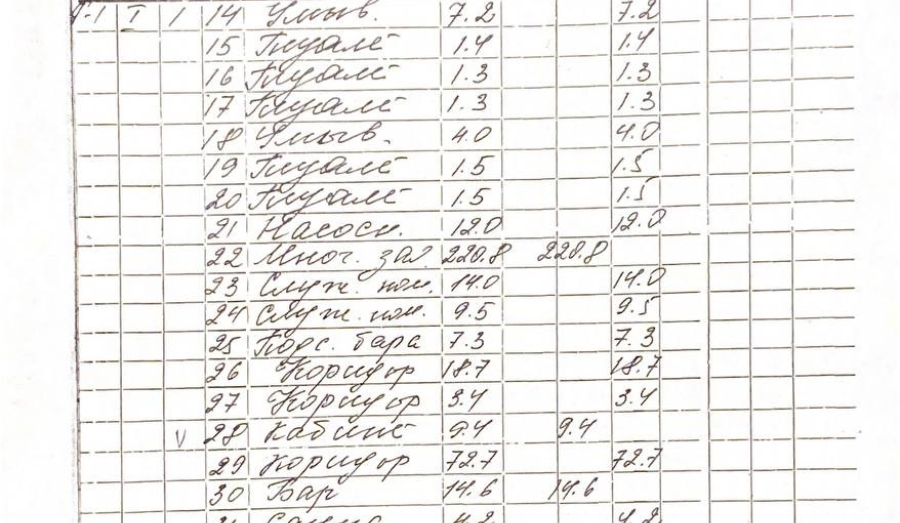 Г-1 I 1 14 Умыв. 7.2 7.2
15 Туалет 1.4 1.4
16 Туалет 1.3 1.3
17 Туалет 1.3 1.3
18 Умыв. 4.0 4.0
19 Туалет 1.5 1.5
20 Туалет 1.5 1.5
21 Насосн. 12.0 12.0
22 Мног. зал. 220.8 220.8
23 Служ. пом. 14.0 14.0
24 Служ. пом. 9.5 9.5
25 Подс. бара 7.3 7.3
26 Коридор 18.7 18.7
27 Коридор 3.4 3.4
V 28 Кабинет 9.4 9.4
29 Коридор 72.7 72.7
30 Бар 14.6 14.6
4.2 4.2